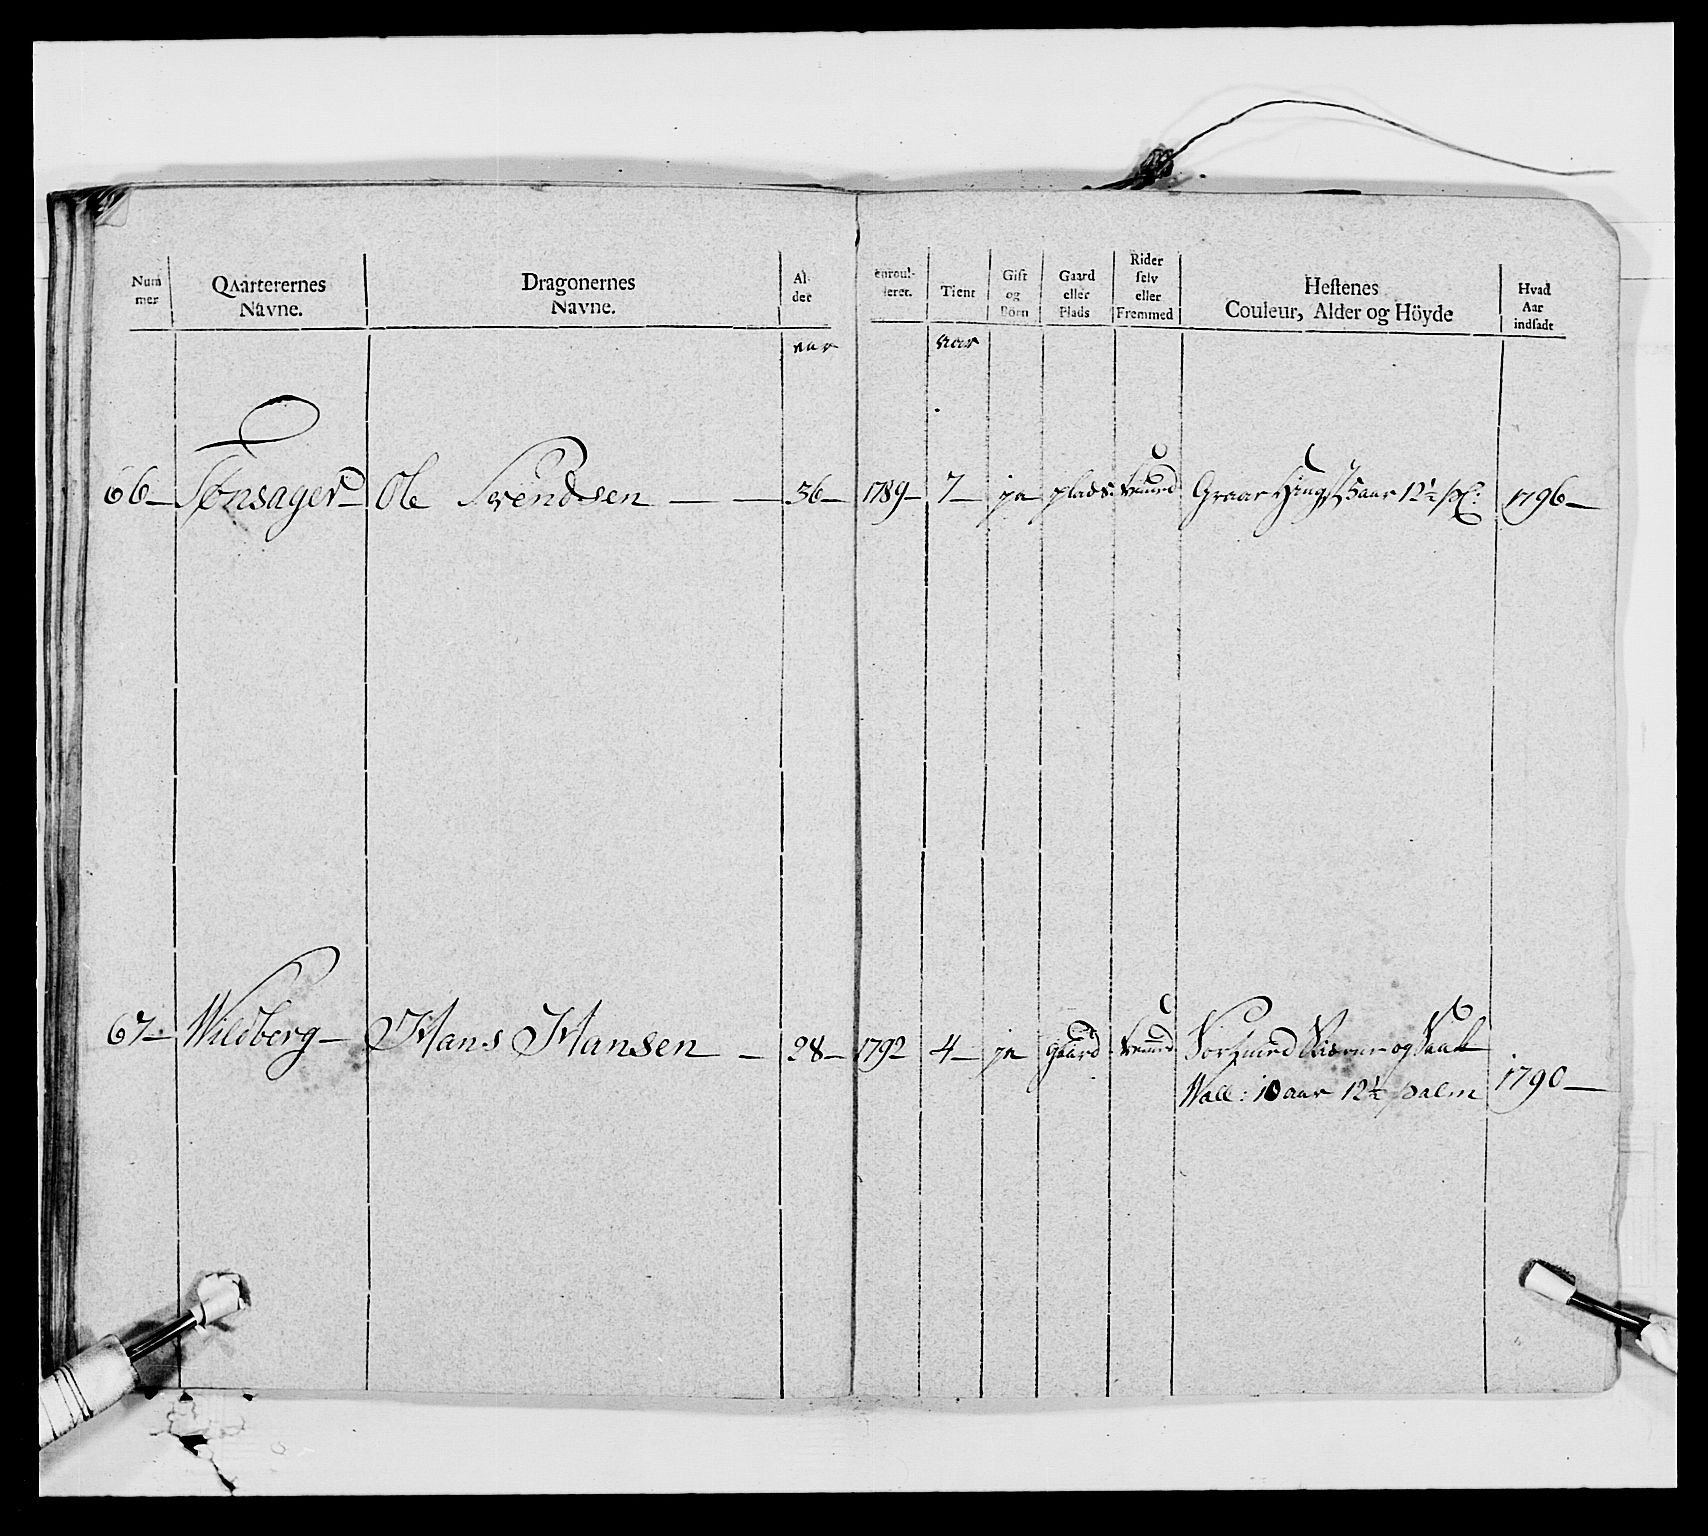 Num
mer
Qvarterernes
Navne.
Dragonernes
Navne.
Al-
der
enroul-
leret.
Tient
Gift
og
Börn
Gaard
eller
Plads
Rider
selv
eller
Fremmed
Hestenes
Couleur, Alder og Höyde
Hvad
Aar
indsadt
aar
aar
66 — Tønsager Ole Svendsen — — 36 — 1789 — 7 — ja plads fremmed Graae Hingst 5 aar 12½ pl: 1796 —
67 — Wildberg — Hans Hansen — 28 — 1792 4 — ja gaard fremmed Sort med Stierne og
Wall: 10 aar 12½ palm 1790 —